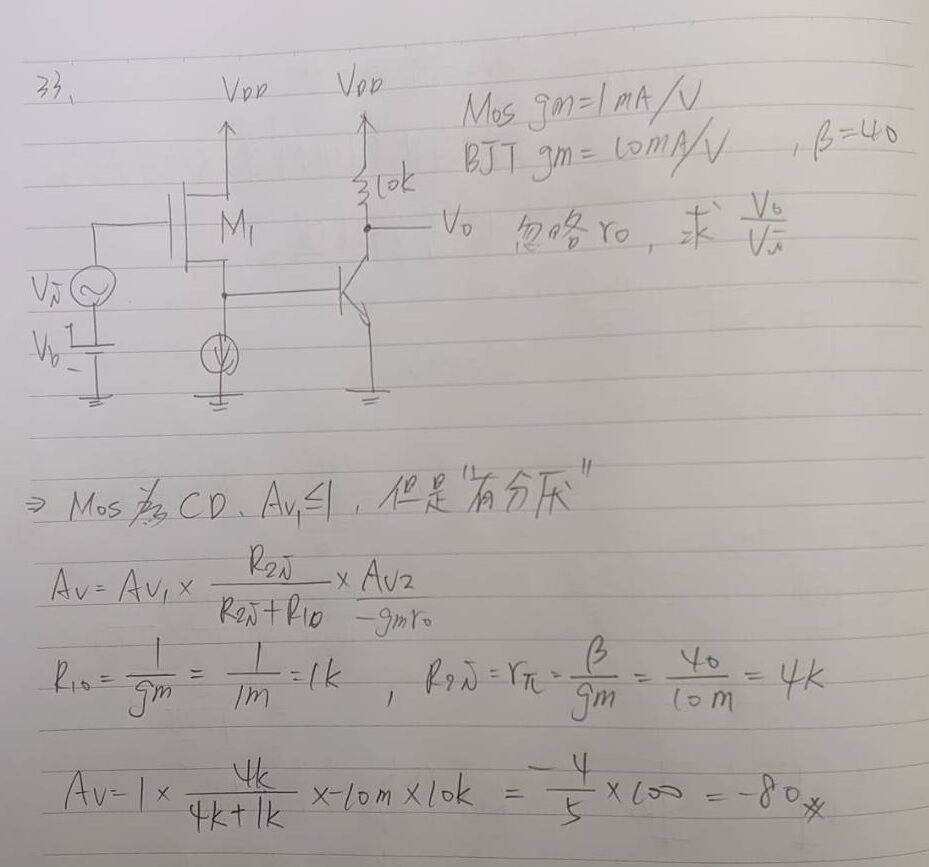 33.
VDD VDD
Mos gm=1mA/V
BJT gm= 10mA/V , β=40
10k
M1
Vo 忽略ro, 求 Vo/Vin
Vin
Vb
⇒ Mos 為 CD、Av1≤1, 但是"有分压"
Av= Av1 × R2in/(R2in+R1o) × Av2
-gmro
R1o = 1/gm = 1/1m = 1k , R2in = rπ = β/gm = 40/10m = 4k
Av= 1 × 4k/(4k+1k) × -10m × 10k = -4/5 × 100 = -80